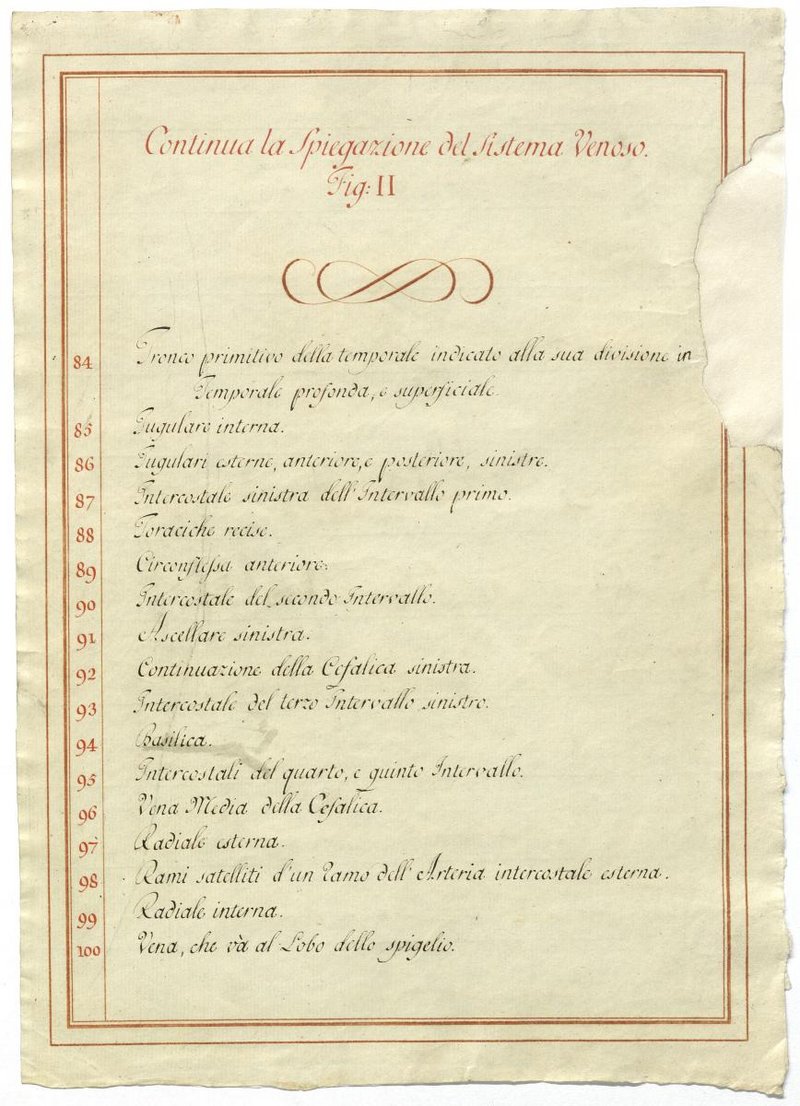 Continua la Spiegazione del Sistema Venoso.
Fig: II
84 Tronco primitivo della temporale indicato alla sua divisione in
Temporale profonda, e superficiale.
85 Jugulare interna.
86 Jugulari esterne, anteriore, e posteriore, sinistre.
87 Intercostale sinistra dell' Intervallo primo.
88 Toraciche recise.
89 Circonflessa anteriore.
90 Intercostale del secondo Intervallo.
91 Ascellare sinistra.
92 Continuazione della Cefalica sinistra.
93 Intercostale del terzo Intervallo sinistro.
94 Basilica.
95 Intercostali del quarto, e quinto Intervallo.
96 Vena Media della Cefalica.
97 Radiale esterna.
98 Rami satelliti d'un Ramo dell' Arteria intercostale esterna.
99 Radiale interna.
100 Vena, che và al Lobo dello spigelio.